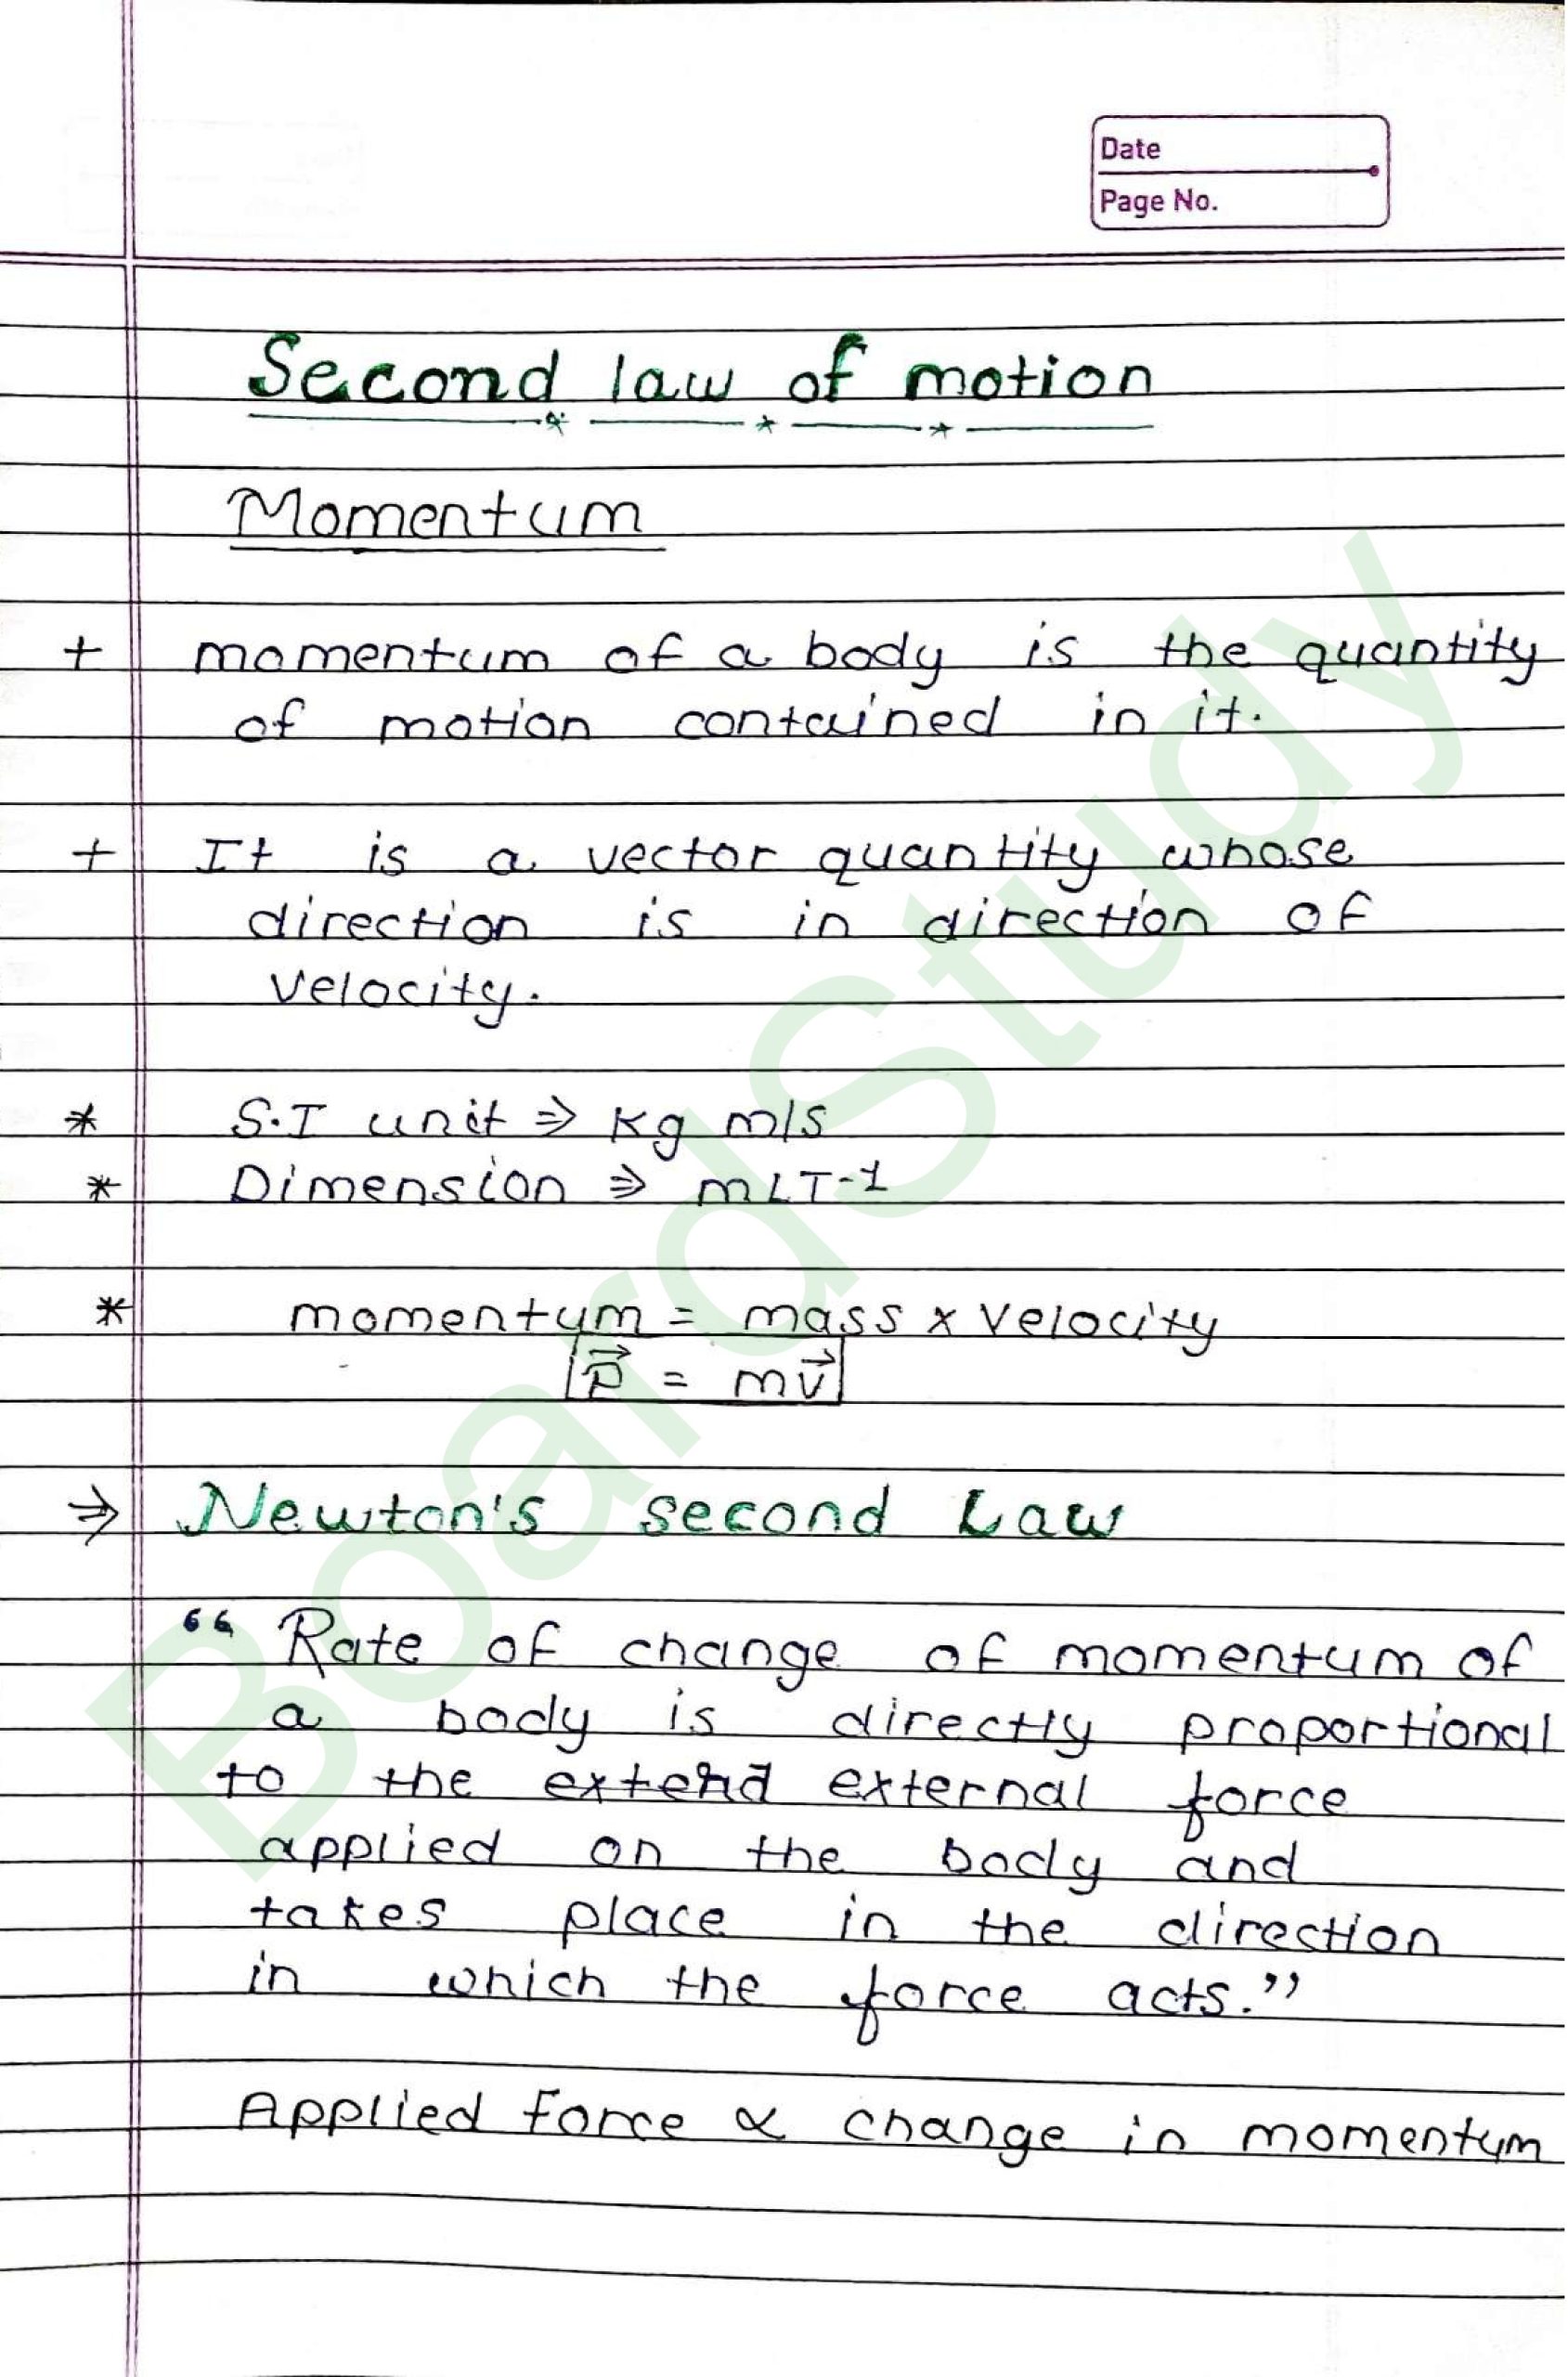 Date
Page No.
Second law of motion
Momentum
+ momentum of a body is the quantity
of motion contained in it.
+ It is a vector quantity whose
direction is in direction of
velocity.
* S.I unit ⇒ Kg m/s
* Dimension ⇒ MLT-1
* momentum = mass x velocity
p⃗ = mv⃗
⇒ Newton's second Law
“ Rate of change of momentum of
a body is directly proportional
to the extend external force
applied on the body and
takes place in the direction
in which the force acts.”
Applied Force ∝ change in momentum
BoardStudy